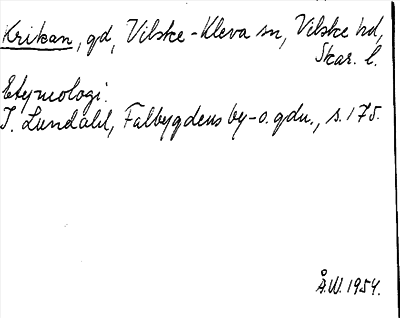 Krikan, gd, Vilske-Kleva sn, Vilske hd,
Skar. l.
Etymologi.
I. Lundahl, Falbygdens by-o. gdn., s. 175.
Å.W. 1954.